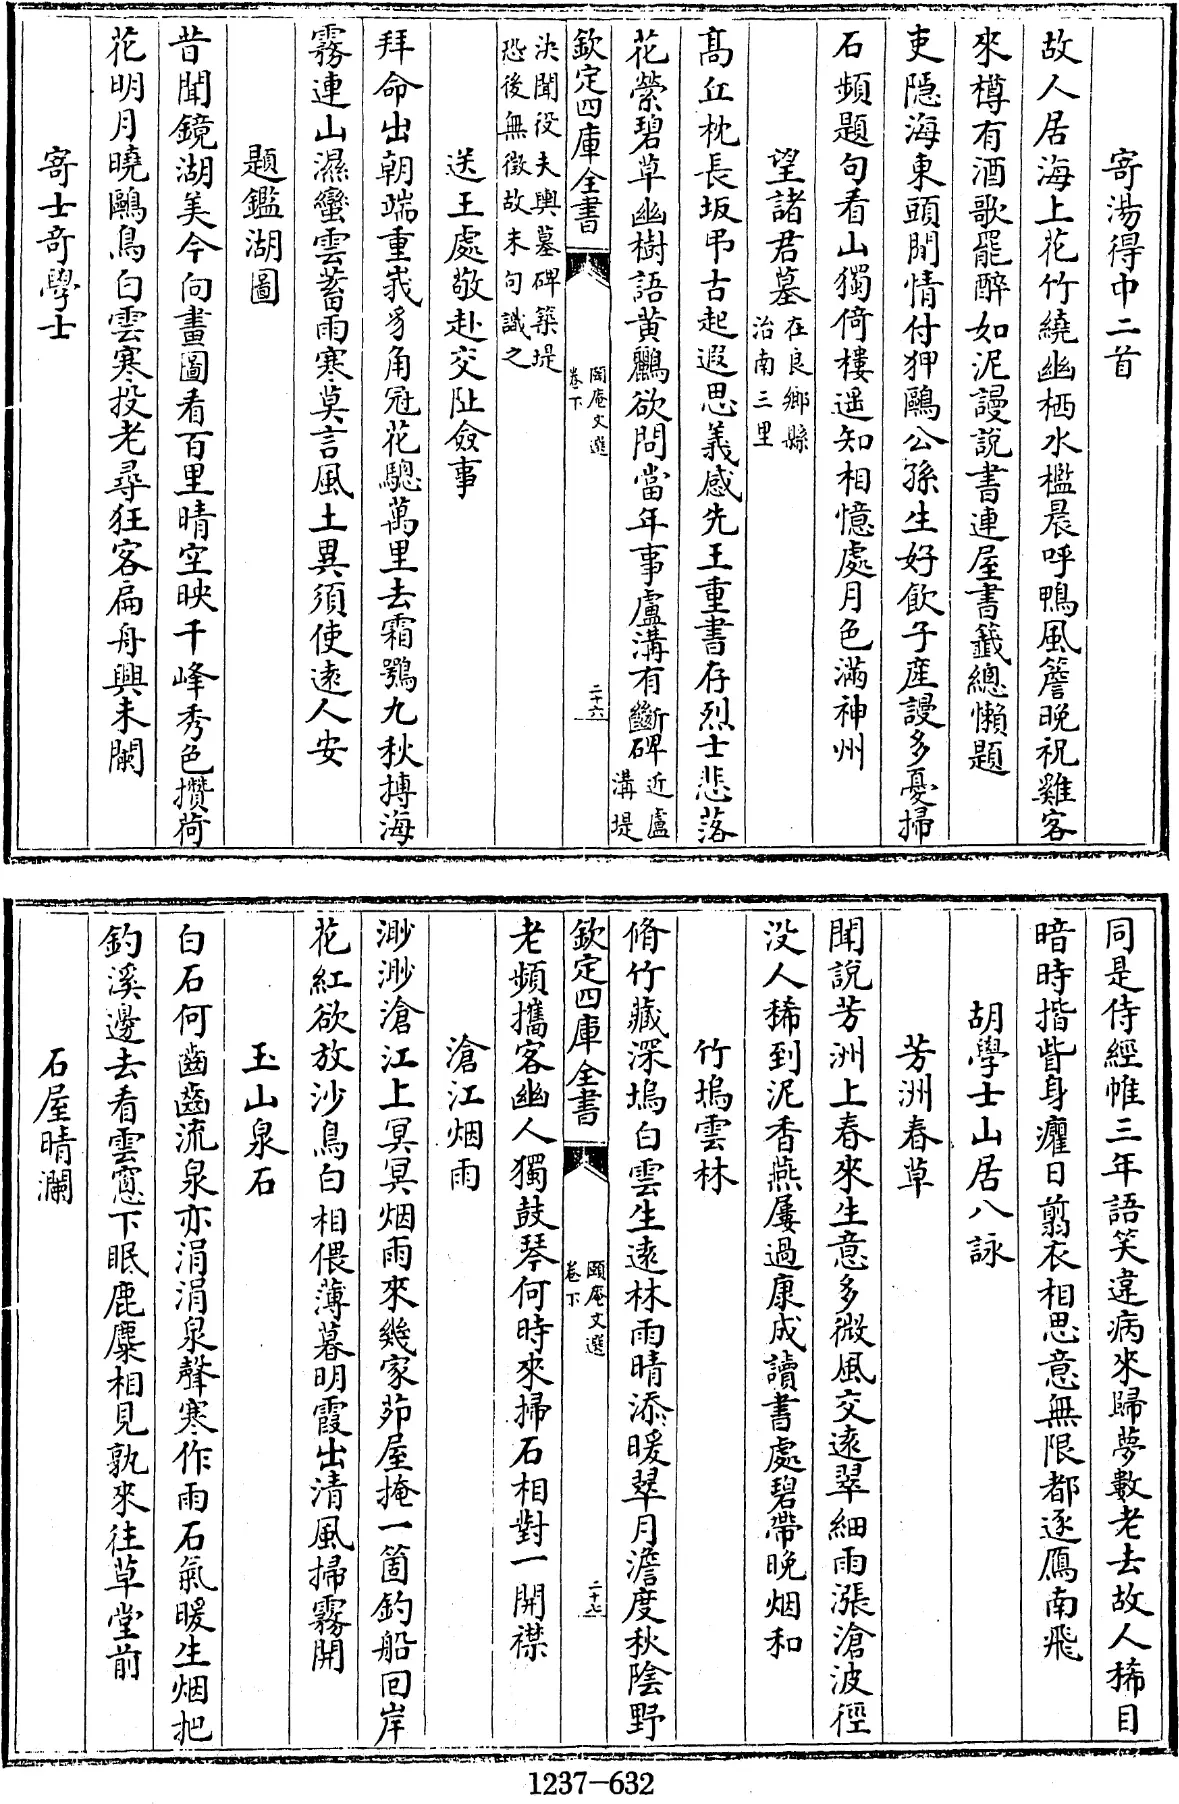 寄湯得中二首
故人居海上花竹繞幽栖水檻晨呼鴨風簷晚祝雞客
來樽有酒歌罷醉如泥謾說書連屋書籤總懶題
吏隐海東頭閒情付狎鷗公孫生好飲子產謾多憂掃
石頻題句看山獨倚樓遥知相憶處月色滿神州
望諸君墓在良鄉縣
治南三里
髙丘枕長坂弔古起遐思義感先王重書存烈士悲落
花縈碧草幽樹語黄鸝欲問當年事盧溝有斷碑近盧
溝堤
欽定四庫全書
頤庵文選
卷下
二十六
決聞役夫輿墓碑築堤
恐後無徴故末句識之
送王處敬赴交阯僉事
拜命出朝端重裁豸角冠花驄萬里去霜鶚九秋摶海
霧連山濕蠻雲蓄雨寒莫言風土異須使逺人安
題鑑湖圖
昔聞鏡湖美今向畫圖看百里晴空映千峰秀色攢荷
花明月曉鷗鳥白雲寒投老尋狂客扁舟興未闌
寄士奇學士
同是侍經帷三年語笑違病來歸夢數老去故人稀目
暗時揩眥身癯日翦衣相思意無限都逐鴈南飛
胡學士山居八詠
芳洲春草
聞說芳洲上春來生意多微風交逺翠細雨漲滄波徑
没人稀到泥香燕屢過康成讀書處碧帶晚烟和
竹塢雲林
脩竹藏深塢白雲生逺林雨晴添暖翠月澹度秋陰野
欽定四庫全書
頤庵文選
卷下
二十七
老頻攜客幽人獨鼓琴何時來掃石相對一開襟
滄江烟雨
渺渺滄江上冥冥烟雨來幾家茆屋掩一箇釣船回岸
花紅欲放沙鳥白相偎薄暮明霞出清風掃霧開
玉山泉石
白石何齒齒流泉亦涓涓泉聲寒作雨石氣暖生烟把
釣溪邊去看雲窓下眠鹿麋相見孰來往草堂前
石屋晴瀾
1237-632